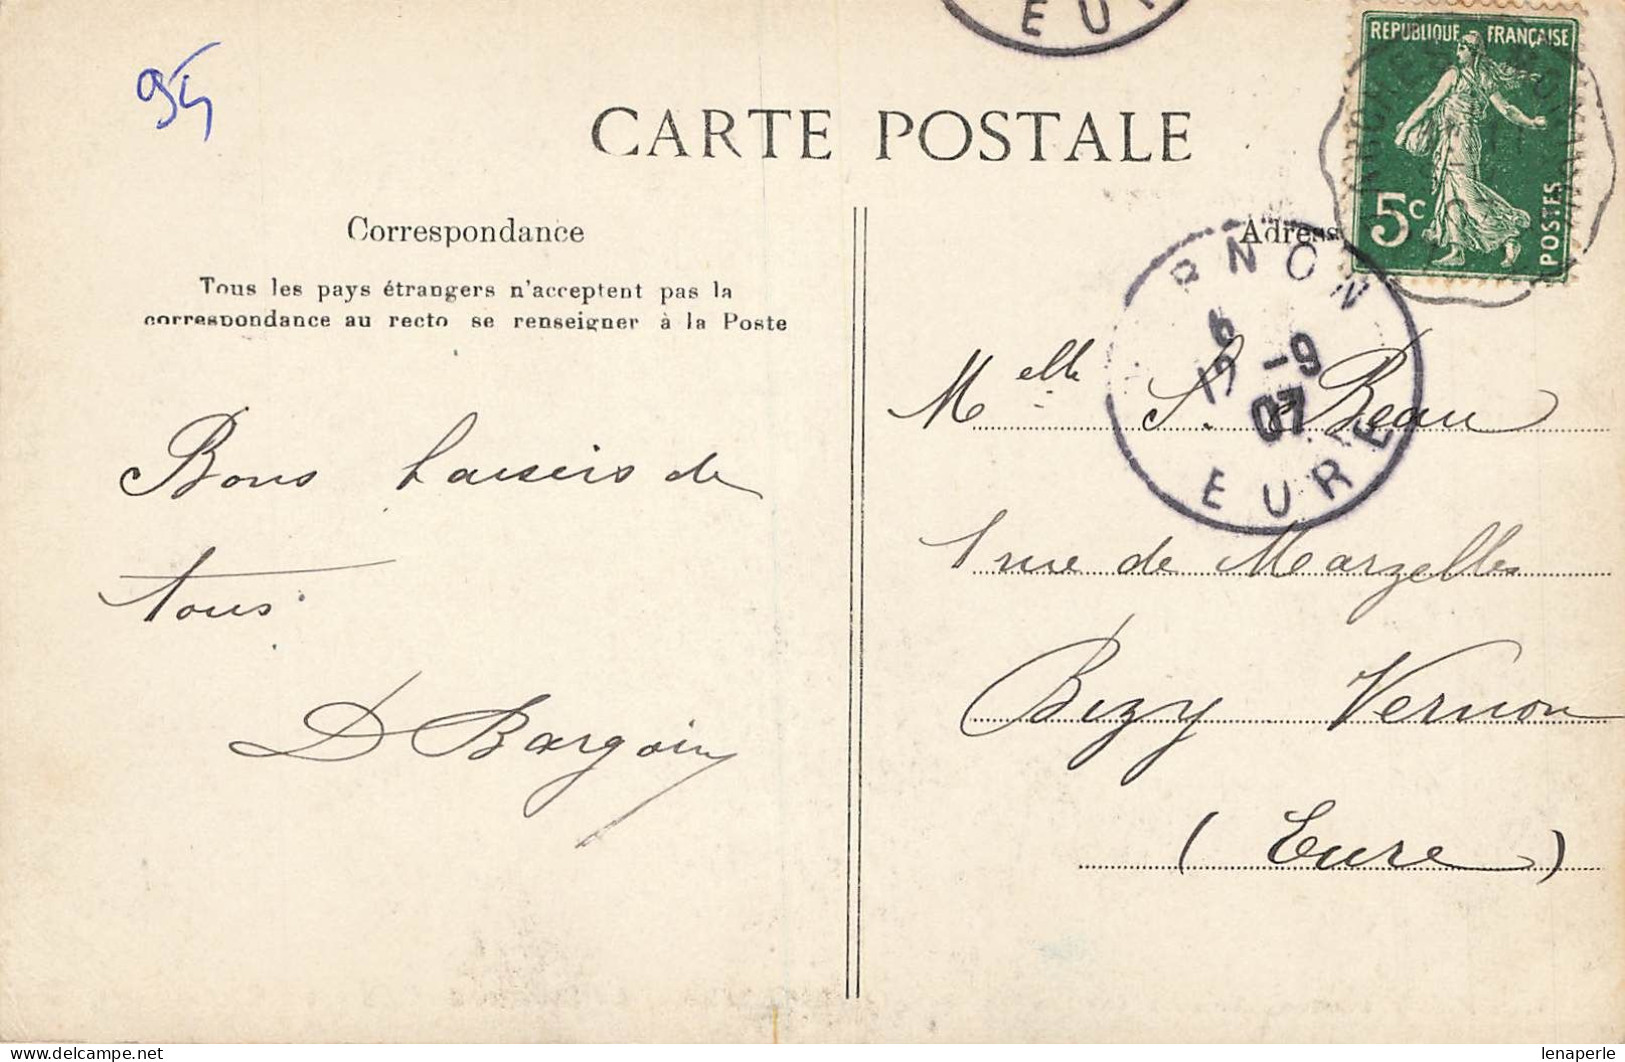 95
CARTE POSTALE
REPUBLIQUE FRANÇAISE
5c
POSTES
EUR
Correspondance
Adress
Tous les pays étrangers n'acceptent pas la
correspondance au recto se renseigner à la Poste
RNON
6
17 -9
07
EURE
Melle S. Beau
Bons baisers de
tous.
1 rue de Marzelles
D Bargoin
Bizy Vernon
(Eure)
delcampe.net
lenaperle